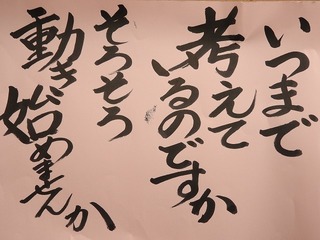 いつまで
考えて
いるのですか
そろそろ
動き
始めませんか